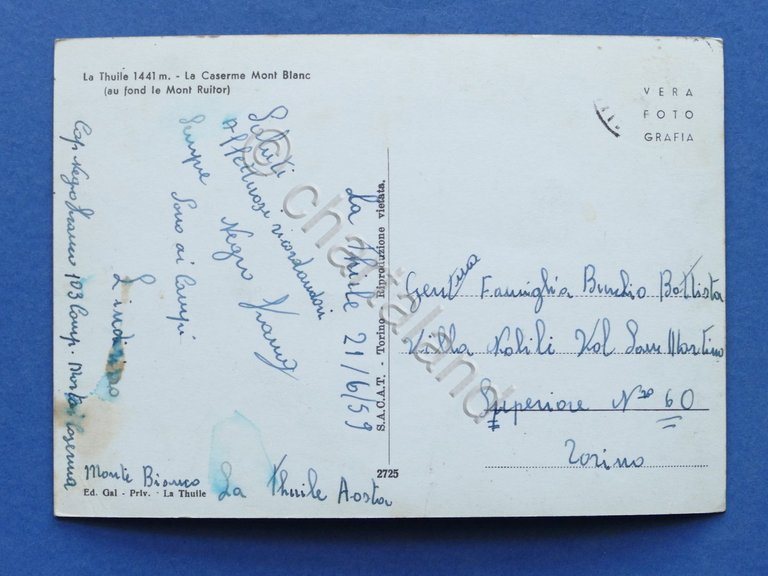 La Thuile 1441 m. - La Caserme Mont Blanc
(au fond le Mont Ruitor)
VERA
FOTO
GRAFIA
La Thuile 21/6/59
Saluti
Affettuosi ricordandovi
Sempre Negro Franco
Sono ai Campi
L'indirizzo
Cap. Negro Franco 103 Comp. Mortai Caserma
Monte Bianco La Thuile Aosta
Ed. Gal - Priv. - La Thuile
2725
S.A.C.A.T. - Torino - Riproduzione vietata.
Gent.ma Famiglia Burdio Battista
Villa Nobili Val San Martino
Superiore N.ro 60
Torino
© charlaland